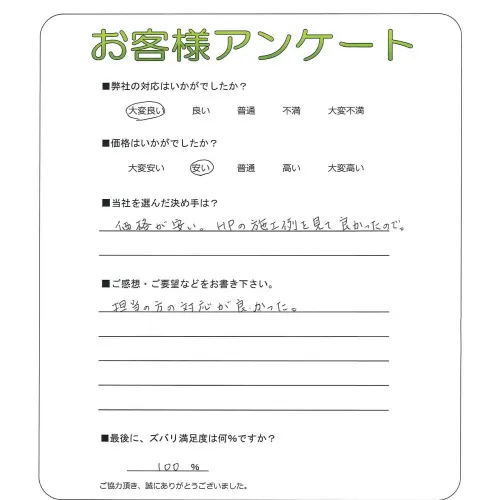 お客様アンケート
■弊社の対応はいかがでしたか？
大変良い 良い 普通 不満 大変不満
■価格はいかがでしたか？
大変安い 安い 普通 高い 大変高い
■当社を選んだ決め手は？
価格が安い。HPの施工例を見て良かったので。
■ご感想・ご要望などをお書き下さい。
担当の方の対応が良かった。
■最後に、ズバリ満足度は何%ですか？
100 %
ご協力頂き、誠にありがとうございました。